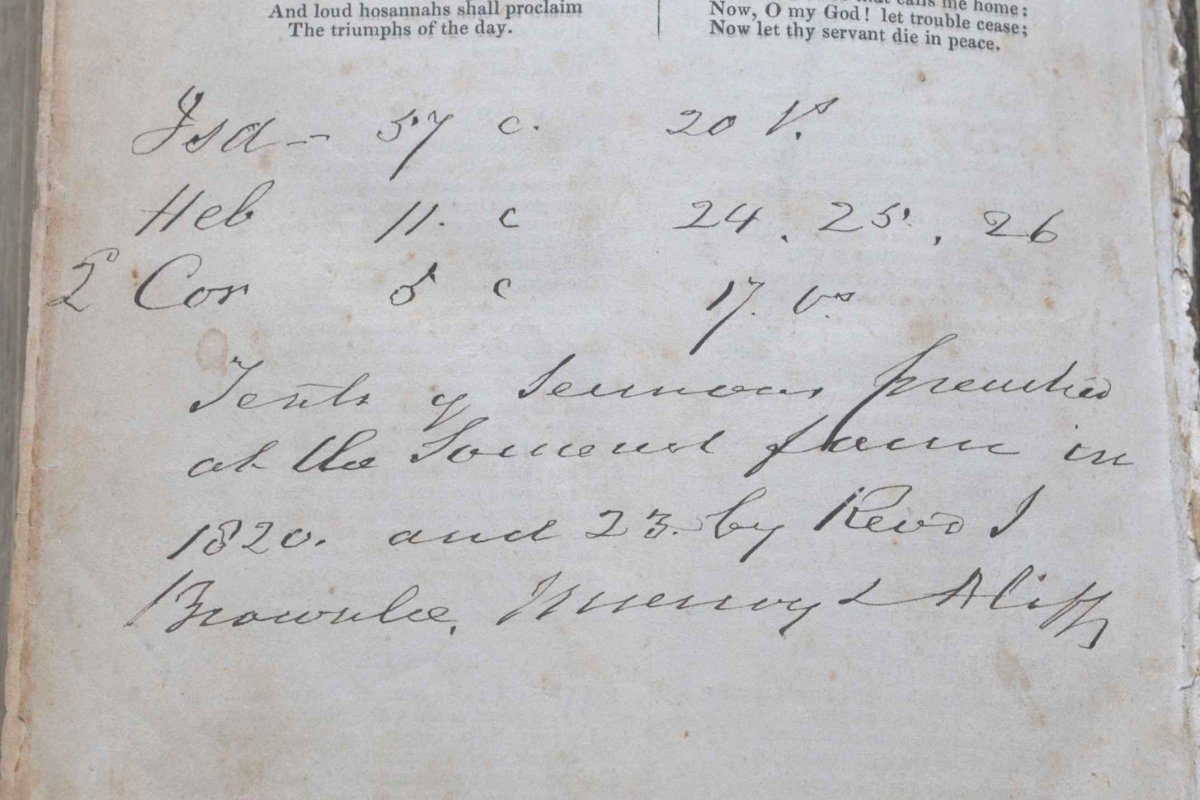 And loud hosannahs shall proclaim
The triumphs of the day.
calls me home:
Now, O my God! let trouble cease;
Now let thy servant die in peace.
Isa - 57 c. 20 Vs.
Heb 11. c 24, 25, 26
2 Cor 5 c 17. vs
Texts of Sermons preached
at the Somerset farm in
1820. and 23. by Revd J
Brownlee, &